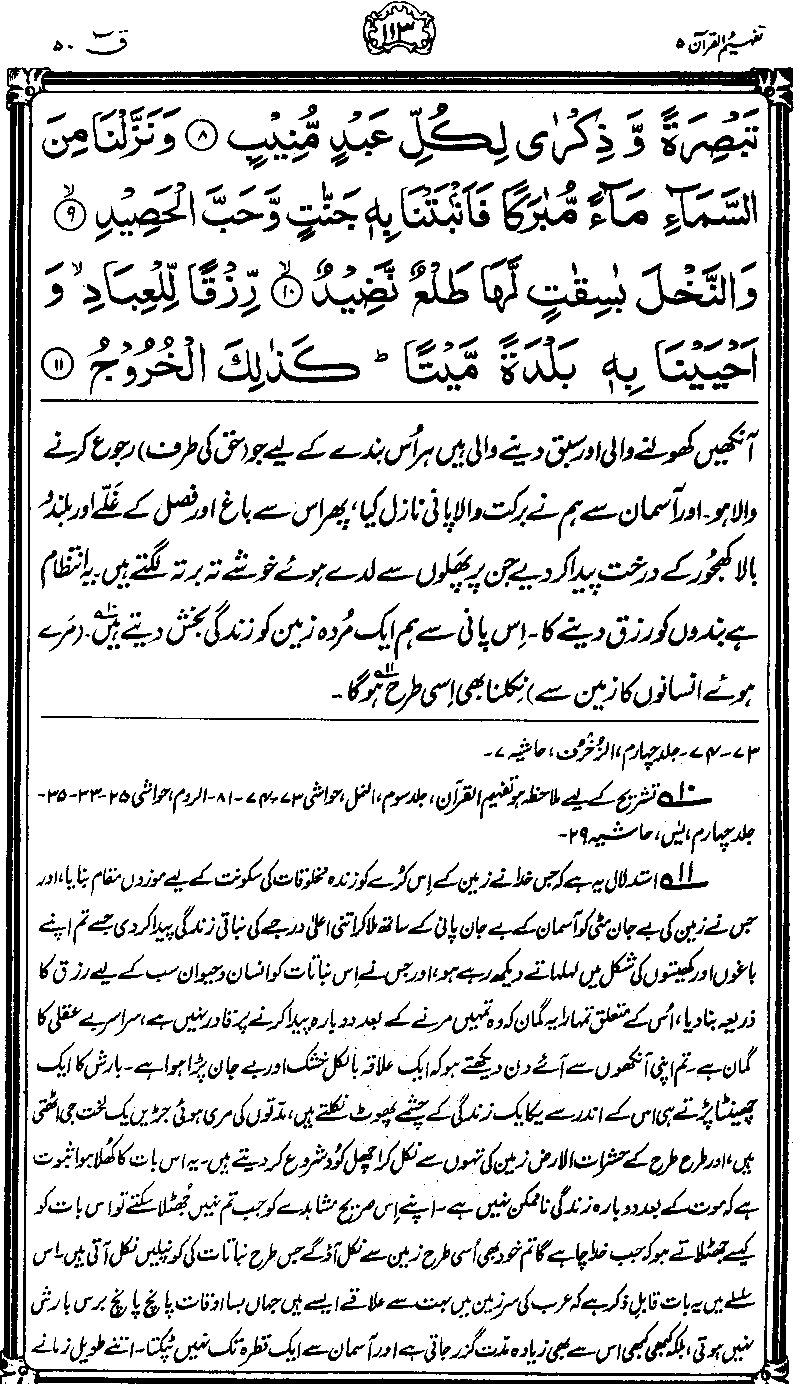 تفہیم القرآن ۵
۱۱۳
قٓ ۵۰
تَبْصِرَةً وَّ ذِكْرٰى لِكُلِّ عَبْدٍ مُّنِيْبٍ ۸ وَنَزَّلْنَا مِنَ
السَّمَآءِ مَآءً مُّبٰرَكًا فَاَنْۢبَتْنَا بِهٖ جَنّٰتٍ وَّحَبَّ الْحَصِيْدِ ۙ ۹
وَالنَّخْلَ بٰسِقٰتٍ لَّهَا طَلْعٌ نَّضِيْدٌ ۙ ۱۰ رِّزْقًا لِّلْعِبَادِ ۙ وَ
اَحْيَيْنَا بِهٖ بَلْدَةً مَّيْتًا ؕ كَذٰلِكَ الْخُرُوْجُ ۱۱
آنکھیں کھولنے والی اور سبق دینے والی ہیں ہر اُس بندے کے لیے جو (حق کی طرف) رجوع کرنے
والا ہو۔ اور آسمان سے ہم نے برکت والا پانی نازل کیا، پھر اس سے باغ اور فصل کے غلّے اور بلند و
بالا کھجور کے درخت پیدا کر دیے جن پر پھلوں سے لدے ہوئے خوشے تہ بر تہ لگتے ہیں۔ یہ انتظام
ہے بندوں کو رزق دینے کا۔ اِس پانی سے ہم ایک مُردہ زمین کو زندگی بخش دیتے ہیں۔۱۰ (مَرے
ہوئے انسانوں کا زمین سے) نکلنا بھی اِسی طرح ہوگا۱۱۔
۷۳-۷۴- جلد چہارم، الزُّخرُف، حاشیہ ۷-
۱۰ تشریح کے لیے ملاحظہ ہو تفہیم القرآن، جلد سوم، النمل، حواشی ۷۳-۷۴-۸۱- الروم، حواشی ۲۵-۳۳-۳۵-
جلد چہارم، یٰس، حاشیہ ۲۹-
۱۱ استدلال یہ ہے کہ جس خدا نے زمین کے اِس کُرے کو زندہ مخلوقات کی سکونت کے لیے موزوں مقام بنایا، اور
جس نے زمین کی بے جان مٹی کو آسمان کے بے جان پانی کے ساتھ ملا کر اتنی اعلیٰ درجے کی نباتی زندگی پیدا کر دی جسے تم اپنے
باغوں اور کھیتوں کی شکل میں لہلہاتے دیکھ رہے ہو، اور جس نے اِس نباتات کو انسان و حیوان سب کے لیے رزق کا
ذریعہ بنا دیا، اُس کے متعلق تمہارا یہ گمان کہ وہ تمہیں مرنے کے بعد دوبارہ پیدا کرنے پر قادر نہیں ہے، سراسر بے عقلی کا
گمان ہے۔ تم اپنی آنکھوں سے آئے دن دیکھتے ہو کہ ایک علاقہ بالکل خشک اور بے جان پڑا ہوا ہے۔ بارش کا ایک
چھینٹا پڑتے ہی اس کے اندر سے یکایک زندگی کے چشمے پھوٹ نکلتے ہیں، مدّتوں کی مری ہوئی جڑیں یک لخت جی اٹھتی
ہیں، اور طرح طرح کے حشرات الارض زمین کی تہوں سے نکل کر اچھل کود شروع کر دیتے ہیں۔ یہ اس بات کا کھُلا ہوا ثبوت
ہے کہ موت کے بعد دوبارہ زندگی ناممکن نہیں ہے۔ اپنے اِس صریح مشاہدے کو جب تم نہیں جُھٹلا سکتے تو اس بات کو
کیسے جھٹلاتے ہو کہ جب خدا چاہے گا تم خود بھی اُسی طرح زمین سے نکل آؤ گے جس طرح نباتات کی کونپلیں نکل آتی ہیں۔ اس
سلسلے میں یہ بات قابلِ ذکر ہے کہ عرب کی سرزمین میں بہت سے علاقے ایسے ہیں جہاں بسا اوقات پانچ پانچ برس بارش
نہیں ہوتی، بلکہ کبھی کبھی اس سے بھی زیادہ مدت گزر جاتی ہے اور آسمان سے ایک قطرہ تک نہیں ٹپکتا۔ اتنے طویل زمانے